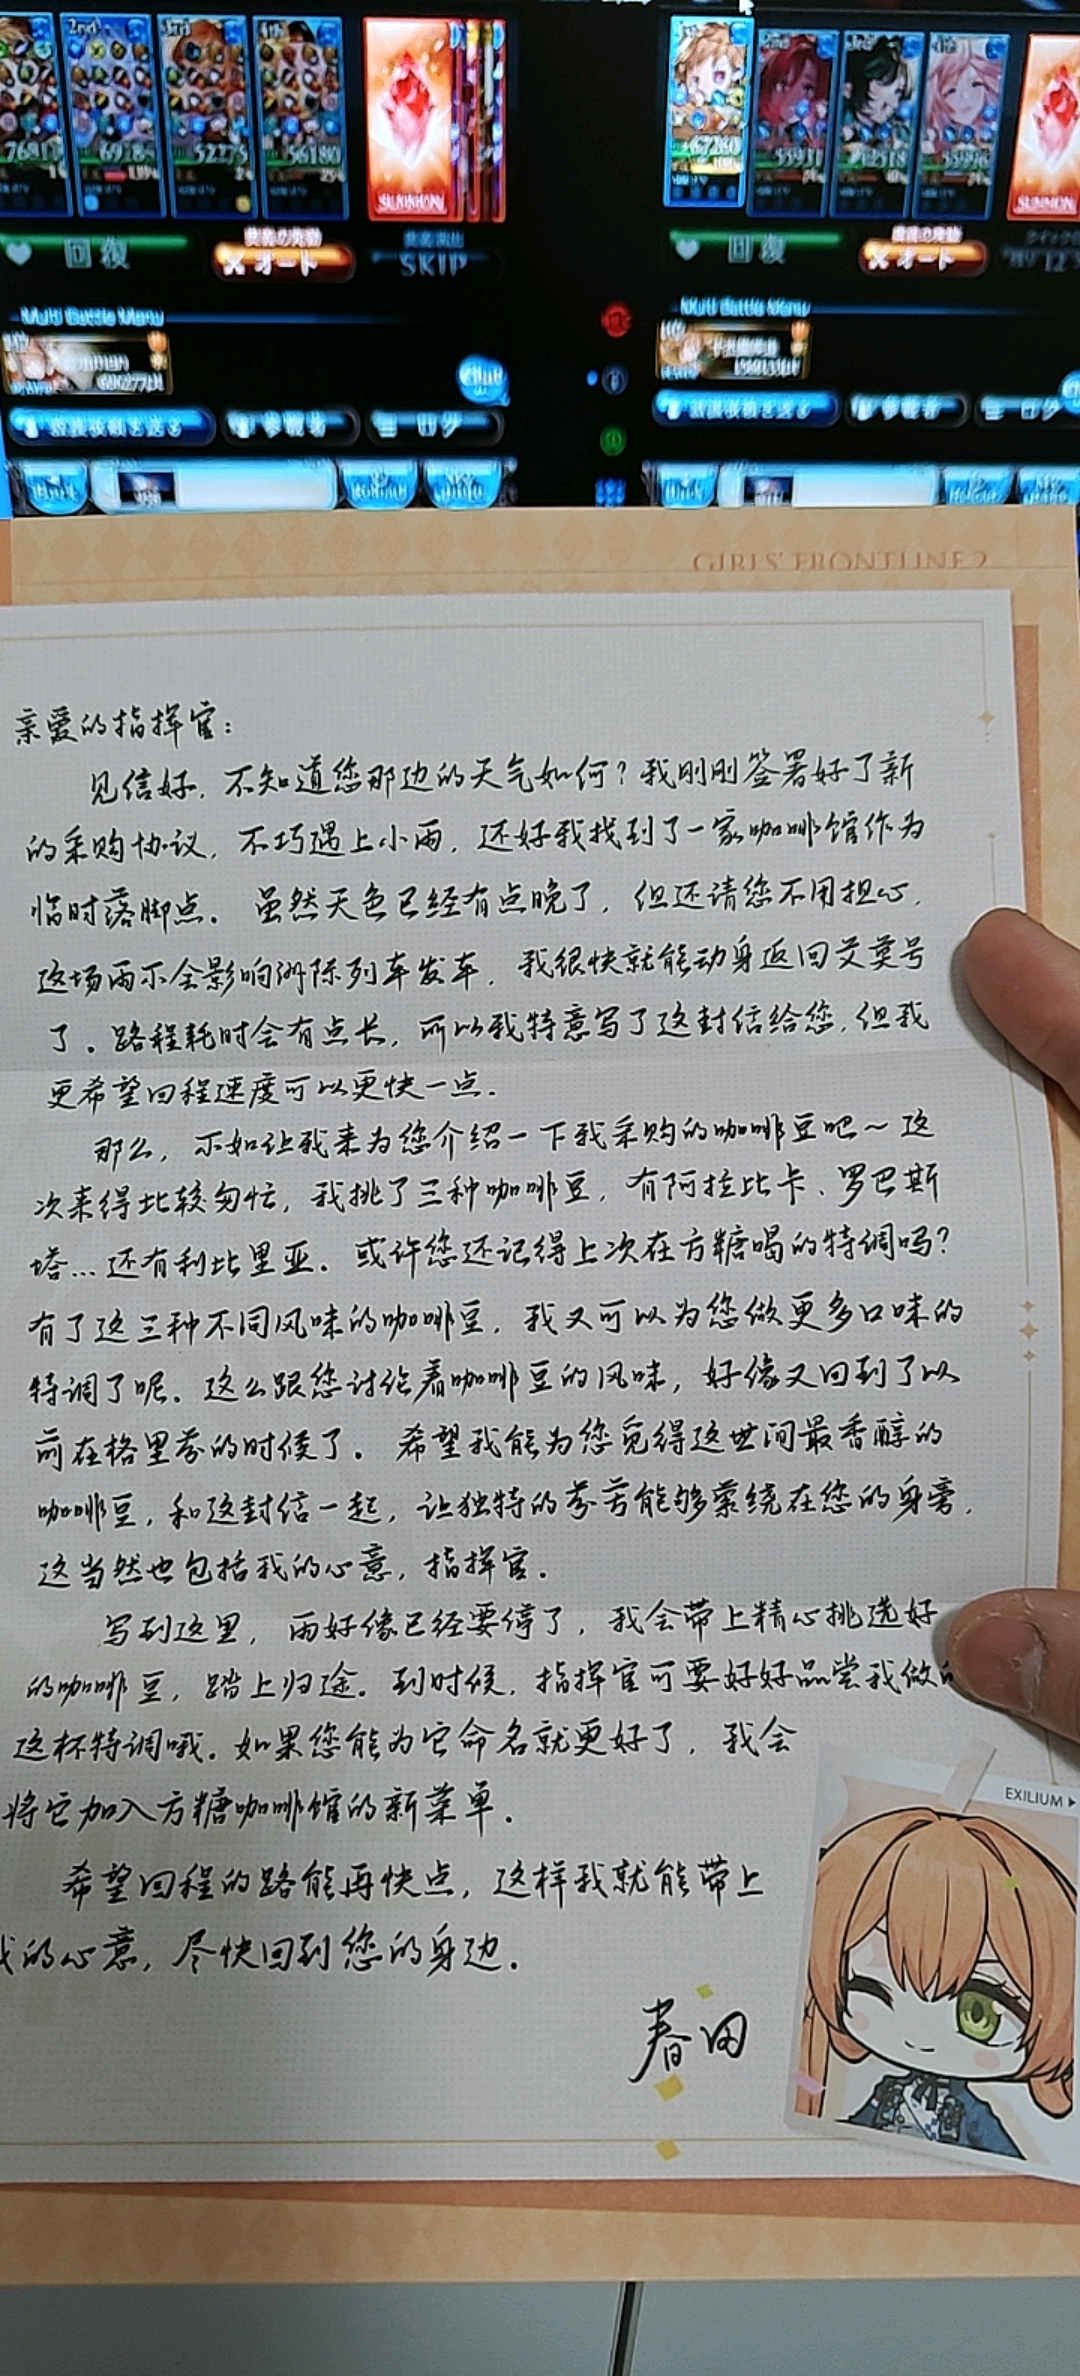 SUMMON
SUMMON
回復
オート
SKIP
回復
オート
Multi Battle Menu
Multi Battle Menu
GIRLS' FRONTLINE 2
亲爱的指挥官：
见信好，不知道您那边的天气如何？我刚刚签署好了新
的采购协议，不巧遇上小雨，还好我找到了一家咖啡馆作为
临时落脚点。虽然天色已经有点晚了，但还请您不用担心，
这场雨不会影响洲际列车发车，我很快就能动身返回艾莫号
了。路程耗时会有点长，所以我特意写了这封信给您，但我
更希望回程速度可以更快一点。
那么，不如让我来为您介绍一下我采购的咖啡豆吧～这
次来得比较匆忙，我挑了三种咖啡豆，有阿拉比卡、罗巴斯
塔...还有利比里亚。或许您还记得上次在方糖喝的特调吗？
有了这三种不同风味的咖啡豆，我又可以为您做更多口味的
特调了呢。这么跟您讨论着咖啡豆的风味，好像又回到了以
前在格里芬的时候了。希望我能为您觅得这世间最香醇的
咖啡豆，和这封信一起，让独特的芬芳能够萦绕在您的身旁，
这当然也包括我的心意，指挥官。
写到这里，雨好像已经要停了，我会带上精心挑选好
的咖啡豆，踏上归途。到时候，指挥官可要好好品尝我做的
这杯特调哦。如果您能为它命名就更好了，我会
将它加入方糖咖啡馆的新菜单。
希望回程的路能再快点，这样我就能带上
我的心意，尽快回到您的身边。
春田
EXILIUM